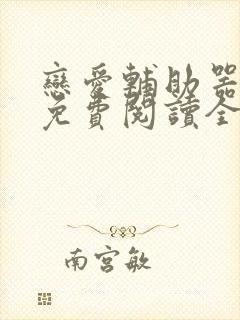 戀愛輔助器
免費閱讀全
南宮敏